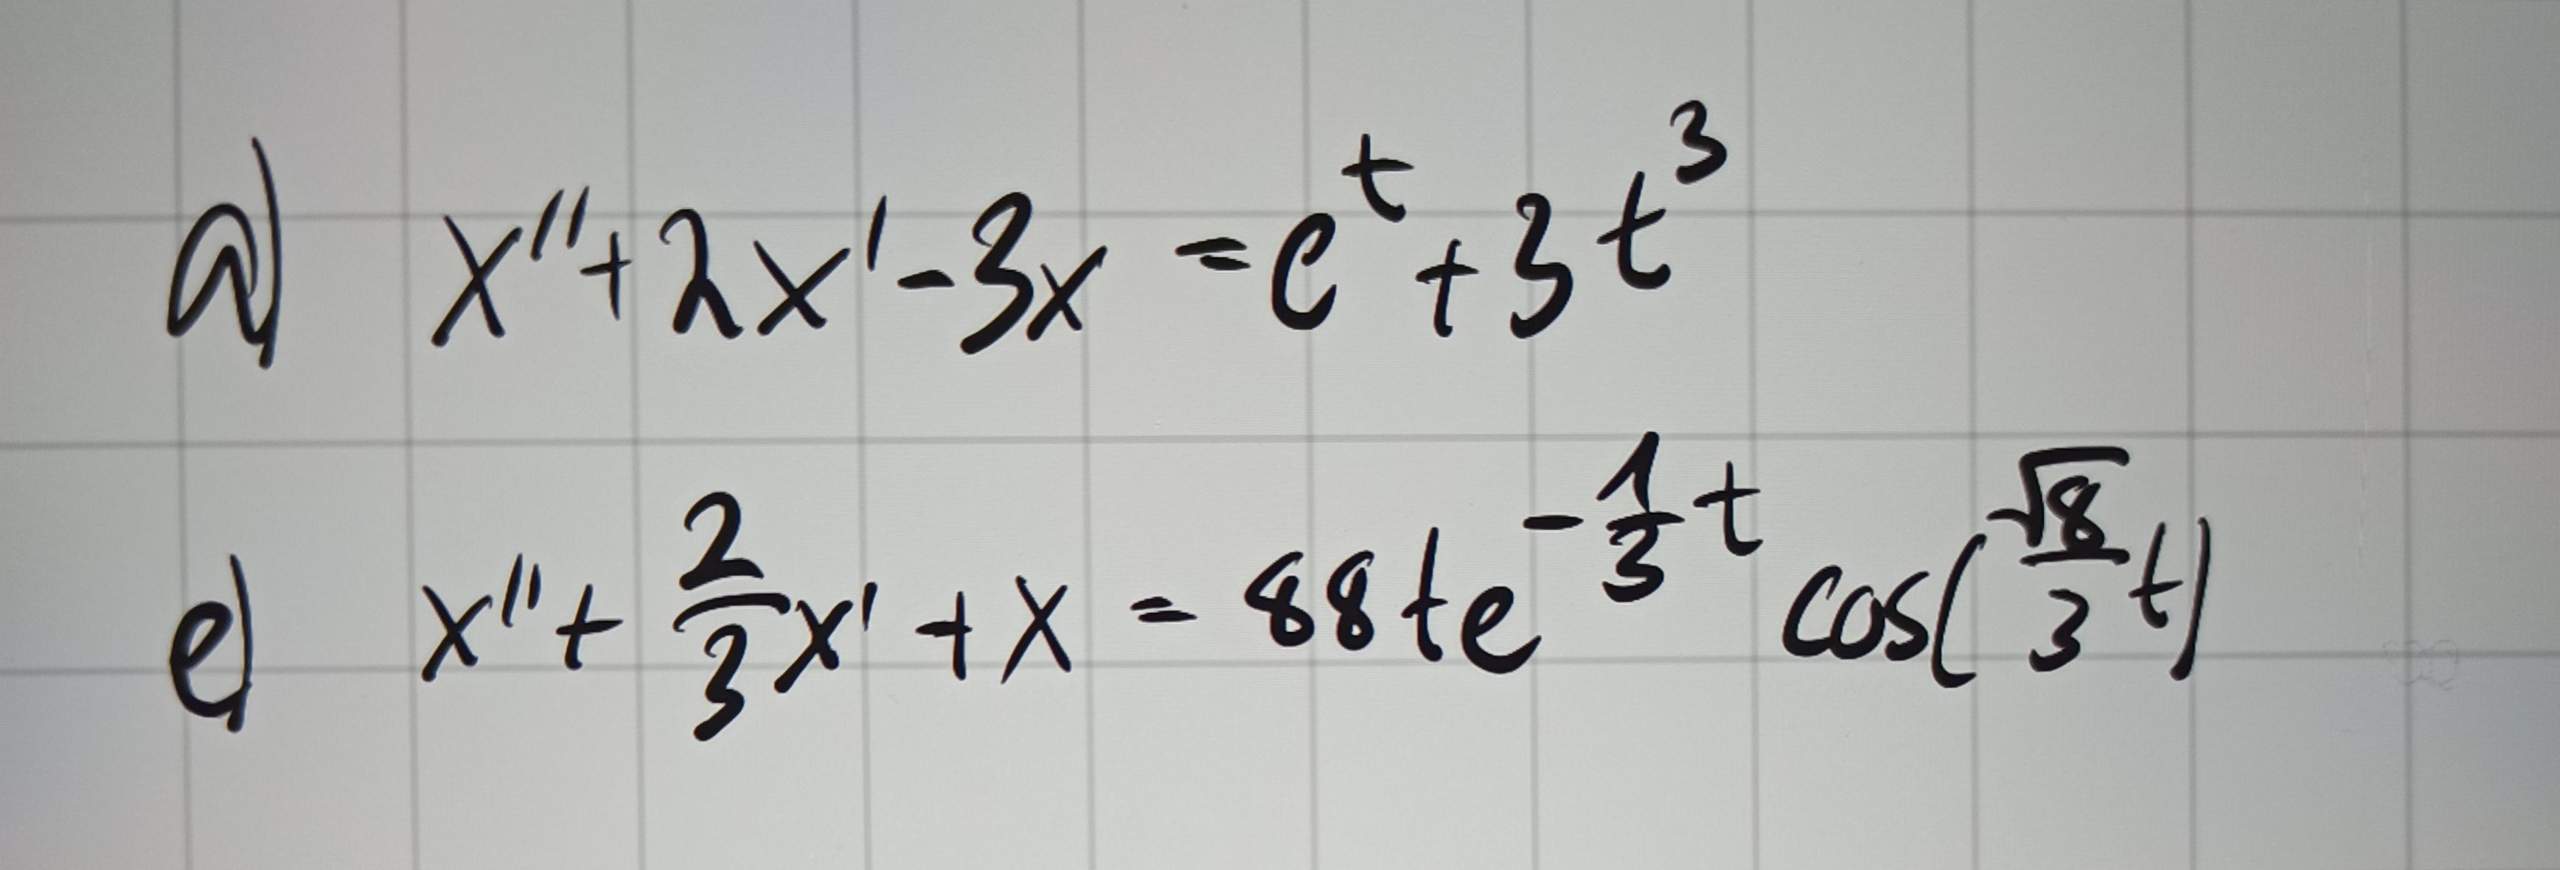 a) x'' + 2x' - 3x = e^t + 3t^3
e) x'' + 2/3 x' + x = 88te^(-1/3 t) cos(√8/3 t)